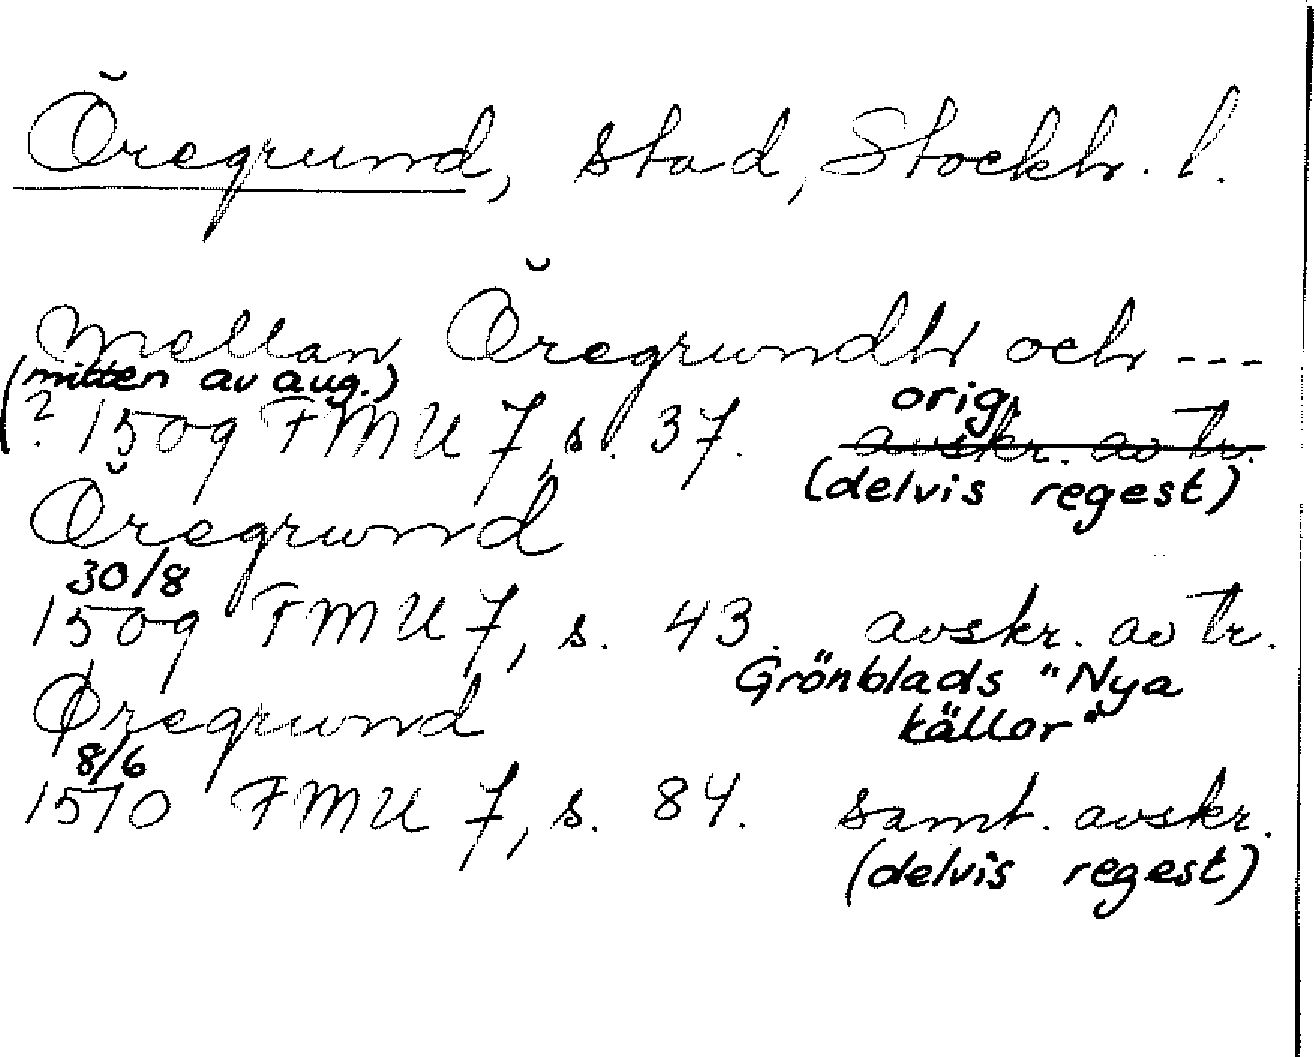 Öregrund, stad, Stockh. l.
mellan Öregrundh och ---
(mitten av aug.) orig.
? 1509 FMU 7, s. 37. avskr. av tr.
(delvis regest)
Öregrund
30/8
1509 FMU 7, s. 43. avskr. av tr.
Grönblads "Nya
källor"
Øregrund
8/6
1510 FMU 7, s. 84. samt. avskr.
(delvis regest)